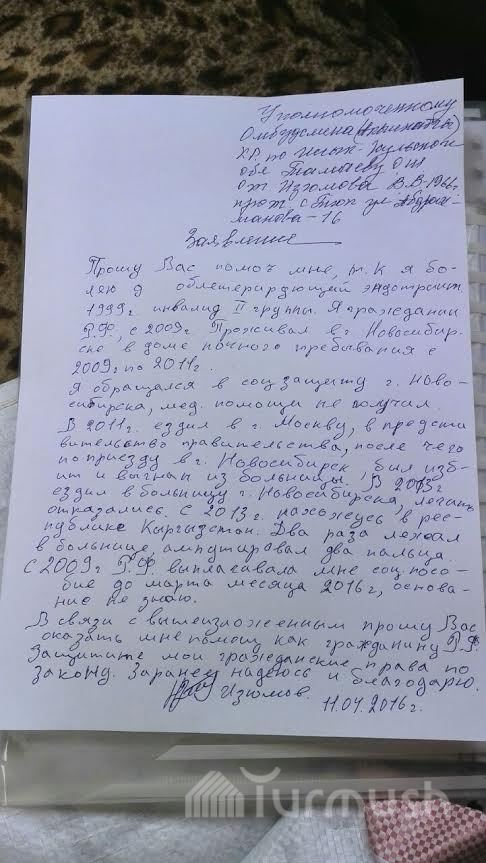 Уполномоченному
Омбудсмена (Акыйкатчы)
КР. по Иссык-Кульской
обл
От Изюмова В.В. 1966г
прож с Тюп ул Абдрах-
манова-16
Заявление
Прошу Вас помоч мне, т.к я бо-
лею облетерирующей эндотриит
1999г. инвалид II группы. Я гражданин
Р.Ф, с 2009г. Проживал в г. Новосибир-
ске в доме ночного пребывания с
2009г по 2011г.
Я обращался в соцзащиту г. Ново-
сибирска, мед. помощи не получил.
В 2011г. ездил в г. Москву, в предста
вительство правительства, после чего
по приезду в г. Новосибирск, был изб-
ит и выгнан из больницы. В 2013г
ездил в больницу г. Новосибирска, лечить
отказались. С 2013г. нахожусь в рес-
публике Кыргызстан. Два раза лежал
в больнице, ампутировал два пальца.
С 2009г Р.Ф выплачивала мне соц. посо-
бие до марта месяца 2016г, основа-
ние не знаю.
В связи с вышеизложенным прошу Вас
оказать мне помощ как гражданину Р.Ф.
Защитите мои гражданские права по
закону. Заранее надеюсь и благодарю.
Изюмов.
11.04.2016г.
Turmush